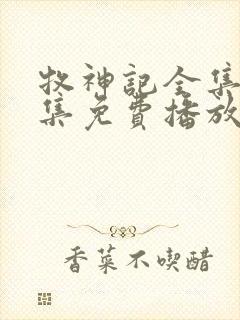 牧神記全集
集免費播放
香菜不喫醋